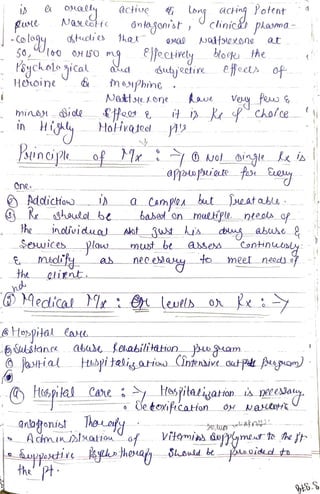 is a orally active & long acting Potent
pure Narcotic antagonist, clinical pharma-
-cology studies that oral Naltrexone at
50, 100 or 150 mg Effectively block the
Psychological and subjective effects of
Heroine & morphine.
Naltrexone have very few &
minor side effects & it is Rx of choice
in Highly Motivated pt's
Principle of Mx : → ① Not single Rx is
appropriate for Every
one.
② Addiction is a complex but Treatable.
③ Rx should be based on multiple needs of
the individual Not Just his drug abuse &
Services plan must be assess Continuously
& modify as necessary to meet needs of
the client.
Medical Mx : Or levels on Rx : →
Hospital Care
Substance abuse Rehabilitation program
Partial Hospitalization (Intensive out program)
Hospital Care : → Hospitalization is necessary.
Detoxification or Narcotic
antagonist Therapy
Administration of Vitamins supplyment to the pt
Supportive Psychotherapy Should be provided to
the pt.